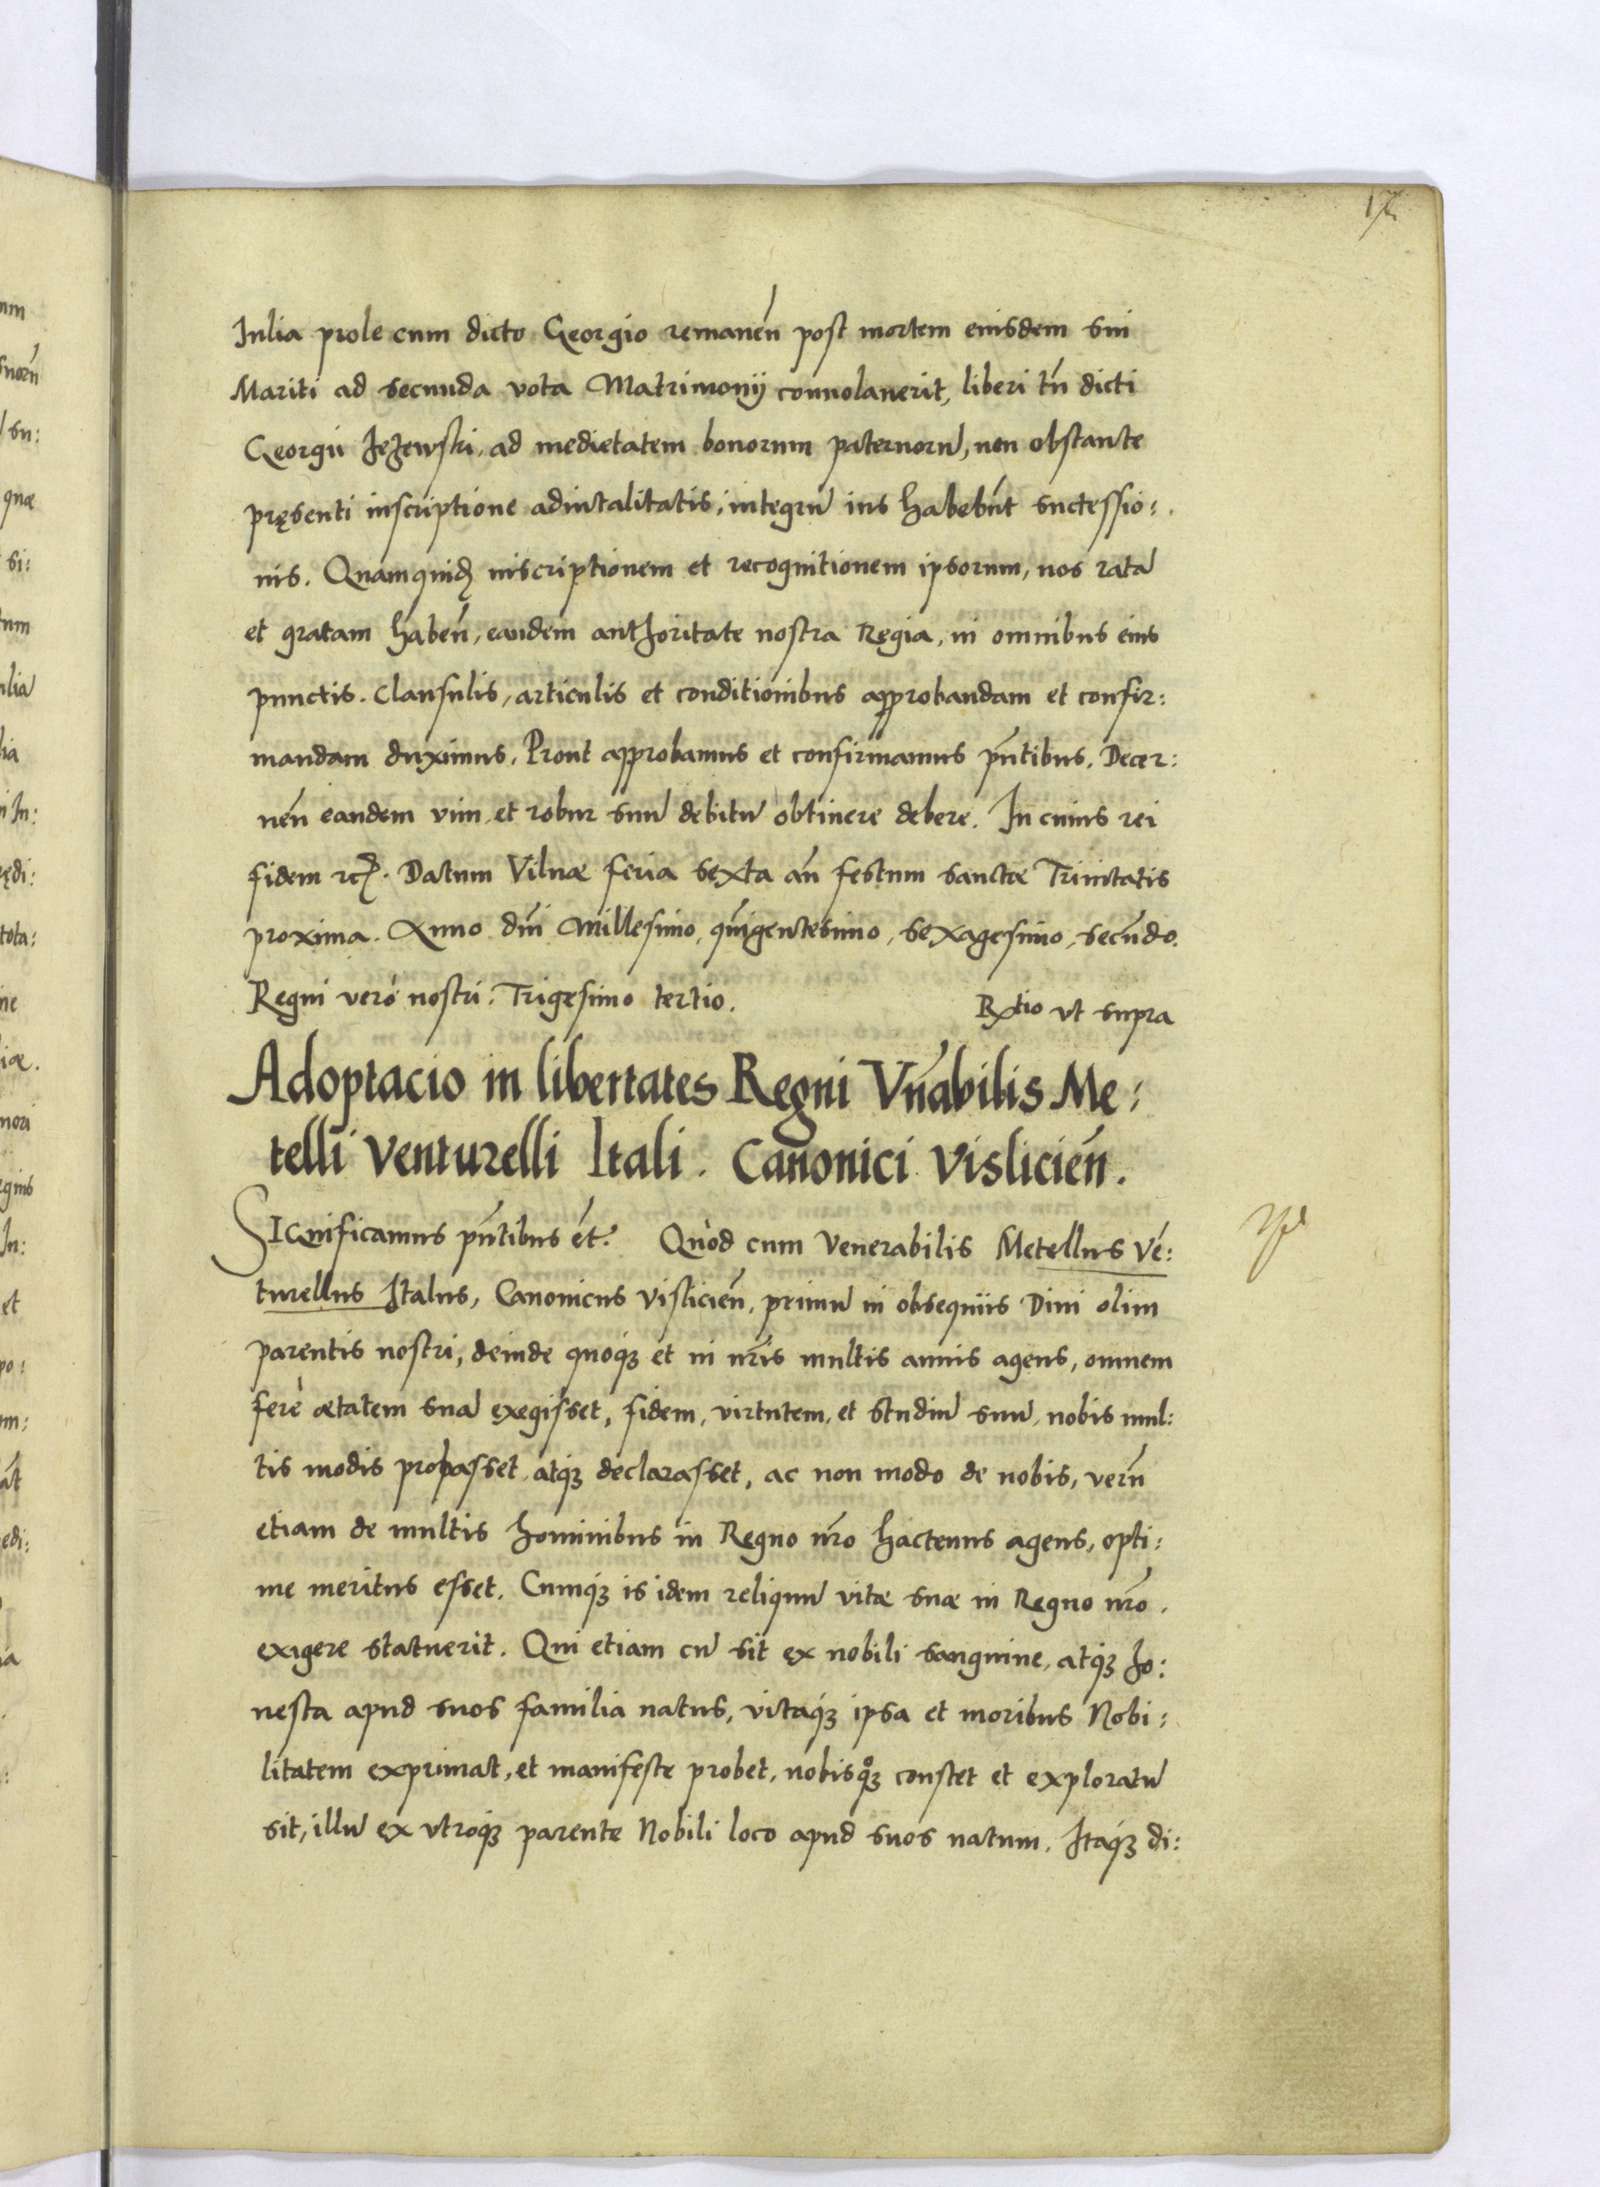 17
Iulia prole cum dicto Georgio remanen̄ post mortem eiusdem sui
Mariti ad secunda vota Matrimonij conuolauerit, liberi tn̄ dicti
Georgii Jeżewski, ad medietatem bonorum paternorū, non obstante
pręsenti inscriptione aduitalitatis, integrū ius habebūnt suctessio:
nis. Quamquidꝫ inscriptionem et recognitionem ipsorum, nos ratā
et gratam haben̄, eandem anthoritate nostra Regia, in omnibus eius
punctis. Clausulis, articulis et conditionibus approbandam et confir:
mandam duximus, Prout approbamus et confirmamus pn̄tibus, Decer:
nen̄ eandem vim et robur suū debitū obtinere debere. In cuius rei
fidem rcꝫ. Datum Vilnæ feria sexta an̄ festum sanctæ Trinitatis
proxima. Anno dn̄i Millesimo, qūigentesimo, sexagesimo, secūndo.
Regni veró nostri. Trigesimo tertio.
Rxtio vt supra
Adoptacio in libertates Regni Vn̄abilis Me:
telli Venturelli Itali. Canonici Vislicien̄.
SIGnificamus pn̄tibus et̄. Quòd cum Venerabilis Metellus Vē:
turellus Italus, Canonicus Vislicien̄, primū in obsequiis Diui olim
parentis nostri, deinde quoqꝫ et in nr̄is multis annis agens, omnem
ferè ætatem suā exegisset, fidem, virtutem, et studiū suū, nobis mul:
tis modis probasset atqꝫ declarasset, ac non modo de nobis, verū
etiam de multis hominibus in Regno nr̄o hactenus agens, opti:
me meritus esset. Cumqꝫ is idem reliquū vitæ suæ in Regno nr̄o.
exigere statuerit. Qui etiam cū sit ex nobili sanguine, atqꝫ ho:
nesta apud suos familia natus, vitaqꝫ ipsa et moribus Nobi:
litatem exprimat, et manifeste probet, nobisqꝫ constet et exploratū
sit, illū ex vtroqꝫ parente Nobili loco apud suos natum. Itaqꝫ di: